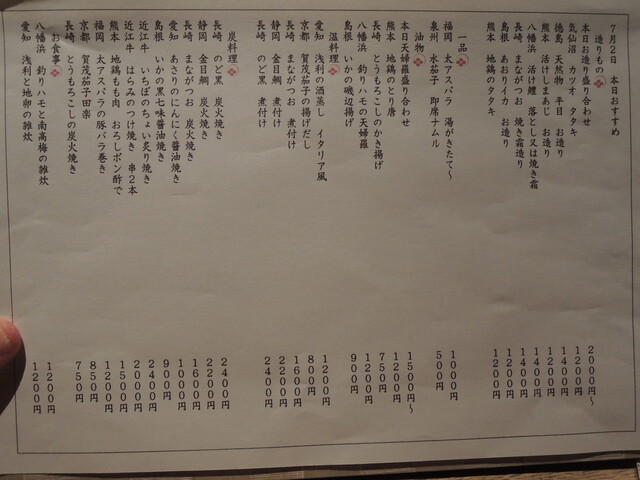 7月2日 本日おすすめ
造りもの
本日お造り盛り合わせ 2000円〜
気仙沼 カツオ タタキ 1200円
徳島 天然物 平目 お造り 1600円
熊本 活けしまあじ お造り 1400円
八幡浜 活け鱧 落とし又は焼き霜 1400円
長崎 まながつお 焼き霜造り 1400円
島根 あおりイカ お造り 1200円
熊本 地鶏のタタキ 1200円
一品
福岡 太アスパラ 湯がきたて〜 1000円
泉州 水茄子 即席ナムル 500円
油物
本日天婦羅盛り合わせ 1500円〜
熊本 地鶏のとり唐 1200円
長崎 とうもろこしのかき揚げ 750円
八幡浜 釣りハモの天婦羅 1200円
島根 いかの磯辺揚げ 900円
温料理
愛知 浅利の酒蒸し イタリア風 1200円
京都 賀茂茄子の揚げだし 800円
長崎 まながつお 煮付け 1600円
静岡 金目鯛 煮付け 2200円
長崎 のど黒 煮付け 2400円
炭料理
長崎 のど黒 炭火焼き 2400円
静岡 金目鯛 炭火焼き 2200円
長崎 まながつお 炭火焼き 1600円
愛知 あさりのにんにく醤油焼き 1000円
島根 いかの黒七味醤油焼き 900円
近江牛 いちぼのちょい炙り焼き 2400円
近江牛 はらみのつけ焼き 串2本 2000円
熊本 地鶏もも肉 おろしポン酢で 1500円
福岡 太アスパラの豚バラ巻き 1200円
京都 賀茂茄子田楽 850円
長崎 とうもろこしの炭火焼き 750円
お食事
八幡浜 釣りハモと南高梅の雑炊 1200円
愛知 浅利と地卵の雑炊 1200円